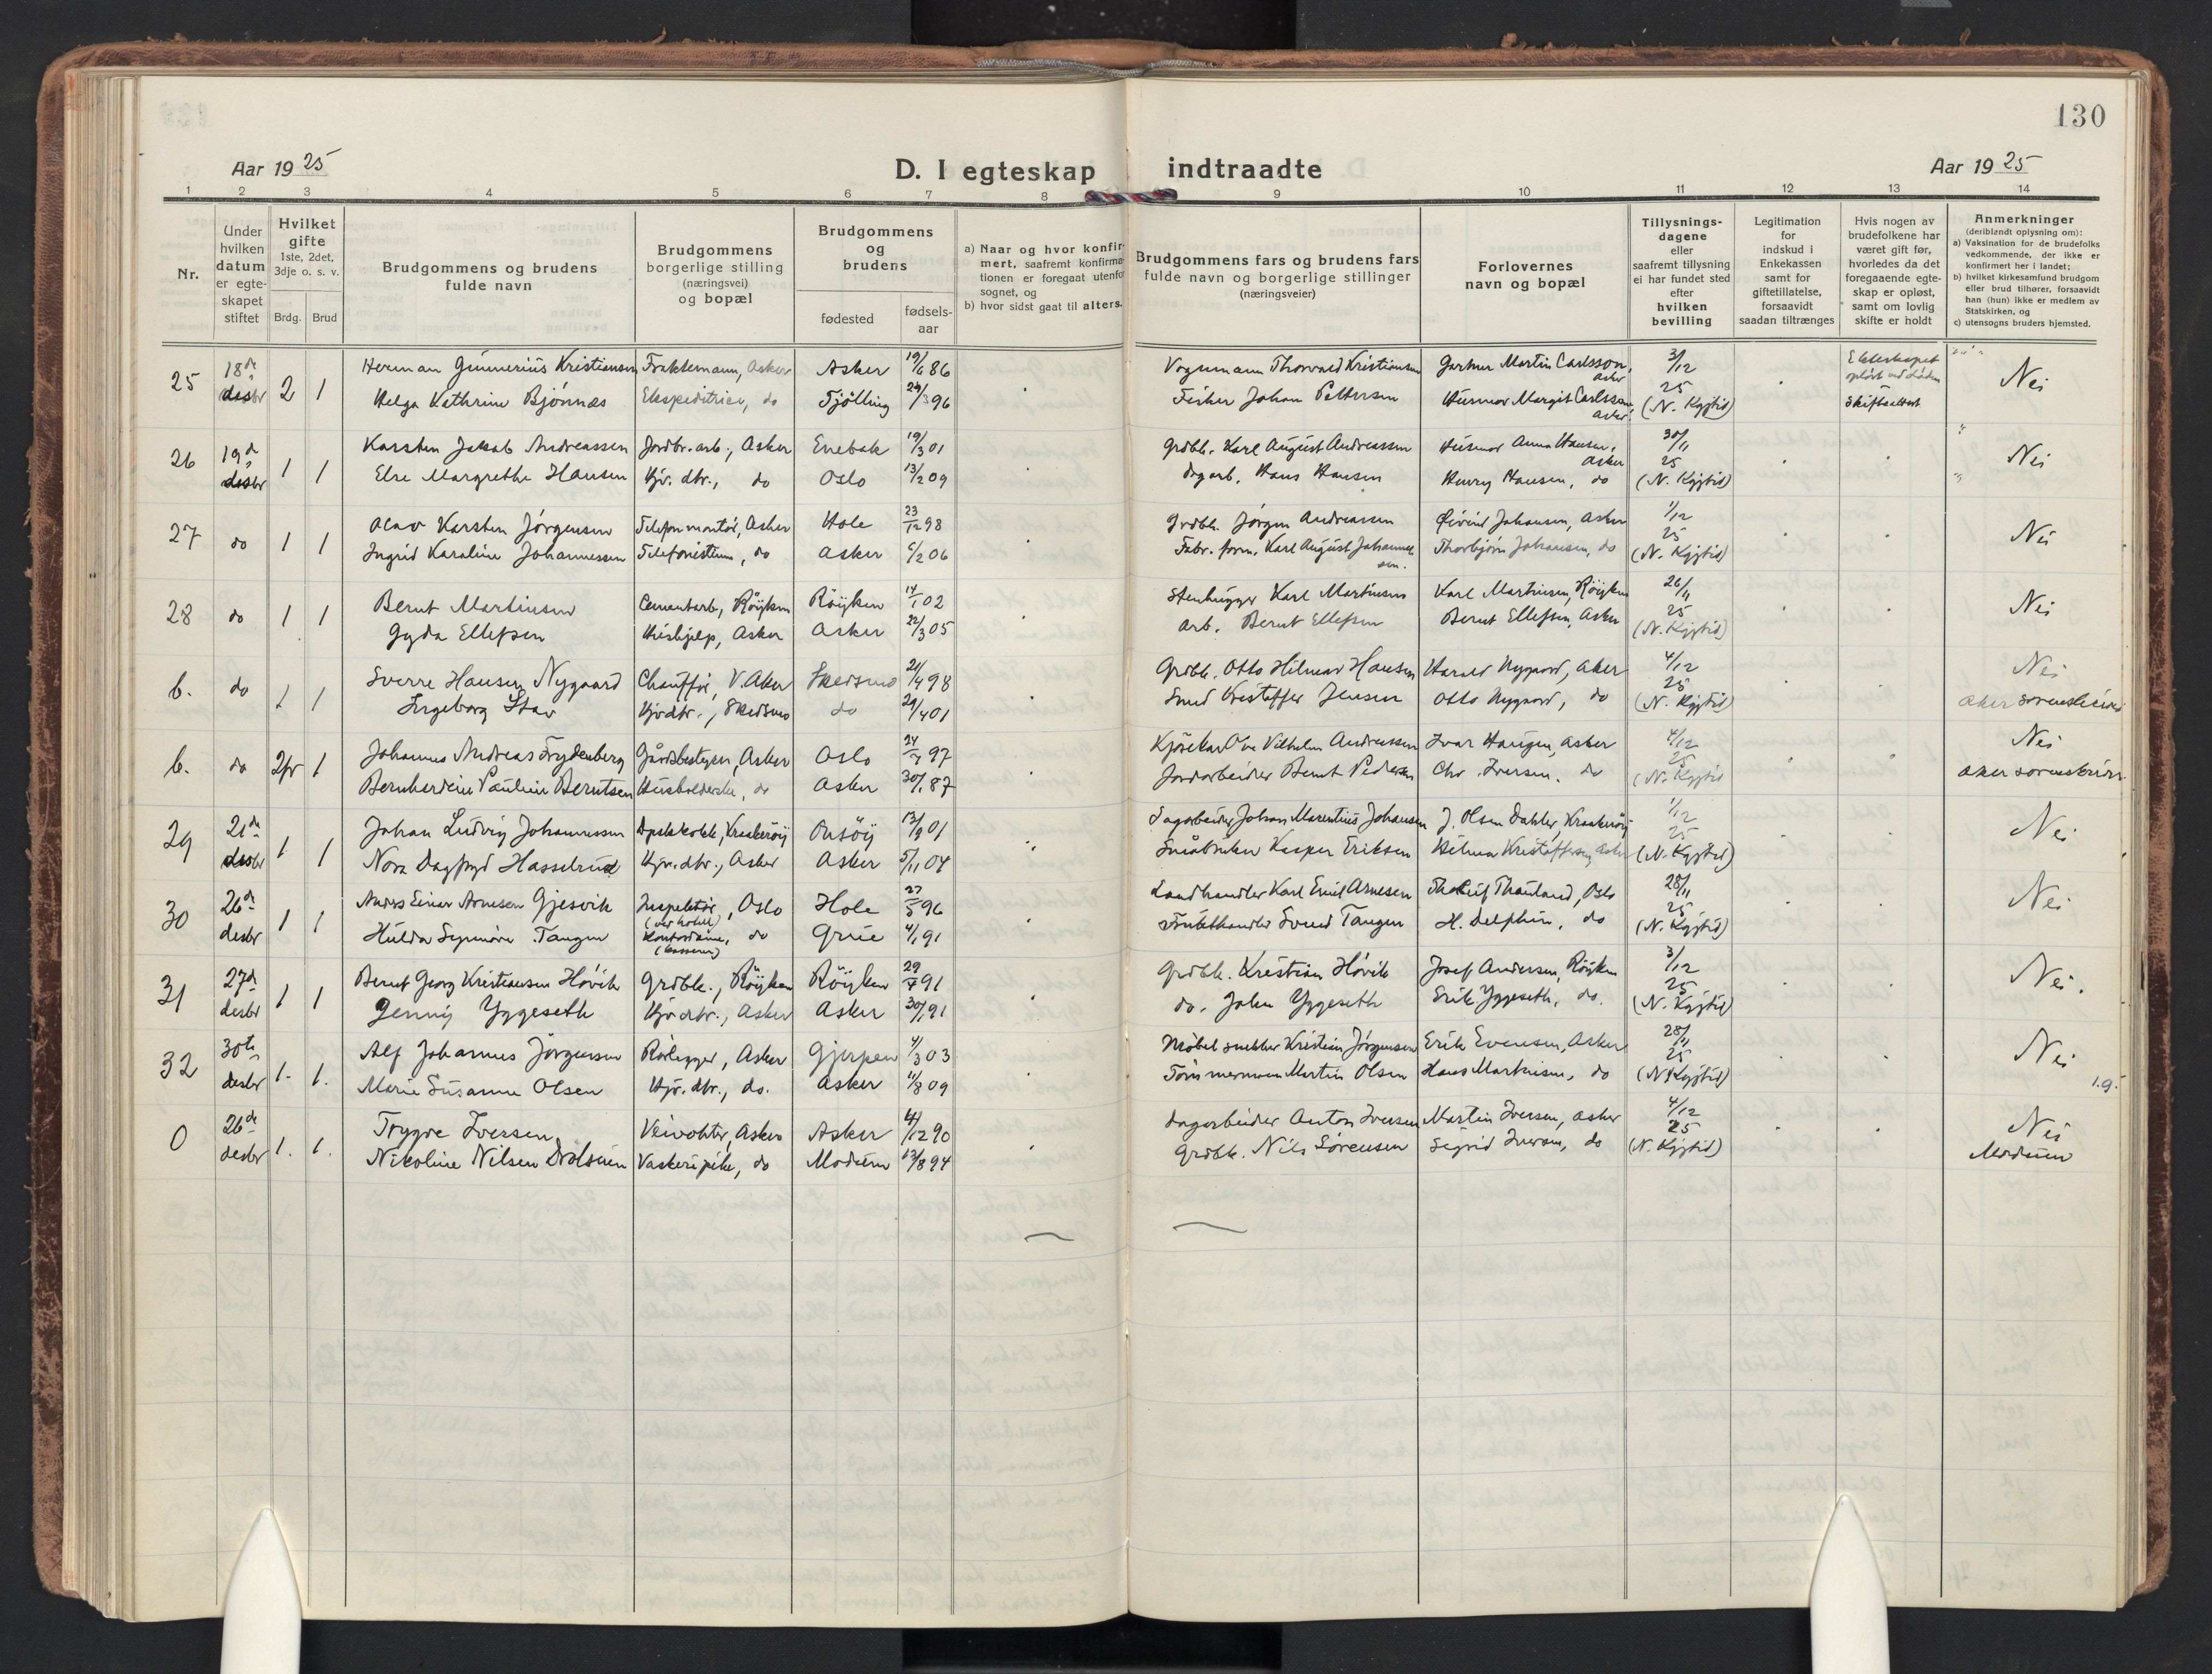 130
Aar 1925
D. I egteskap indtraadte
Aar 1925
1 2 3 4 5 6 7 8 9 10 11 12 13 14
Nr.
Under hvilken datum er egteskapet stiftet
Hvilket gifte 1ste, 2det, 3dje o. s. v.
Brdg. Brud
Brudgommens og brudens fulde navn
Brudgommens borgerlige stilling (næringsvei) og bopæl
Brudgommens og brudens
fødested
fødsels-aar
a) Naar og hvor konfirmert, saafremt konfirmationen er foregaat utenfor sognet, og
b) hvor sidst gaat til alters.
Brudgommens fars og brudens fars fulde navn og borgerlige stillinger (næringsveier)
Forlovernes navn og bopæl
Tillysnings-dagene eller saafremt tillysning ei har fundet sted efter hvilken bevilling
Legitimation for indskud i Enkekassen samt for giftetillatelse, forsaavidt saadan tiltrænges
Hvis nogen av brudefolkene har været gift før, hvorledes da det foregaaende egteskap er opløst, samt om lovlig skifte er holdt
Anmerkninger (deriblandt oplysning om):
a) Vaksination for de brudefolks vedkommende, der ikke er konfirmert her i landet;
b) hvilket kirkesamfund brudgom eller brud tilhører, forsaavidt han (hun) ikke er medlem av Statskirken, og
c) utensogns bruders hjemsted.
25 18de desbr 2 1 Herman Gunnerius Kristiansen Asker Asker 19/6 86 Vognmann Thorvald Kristiansen Gartner Martin Carlsson, Asker 3/12 25 Nei
Helga Kathrine Bjønnæs Ekspeditrice, do Tjølling 24/3 96 Fisker Johan Pettersen Husmor Margit Carlsson Asker (N. Kgjtid) Skifteattest
26 19de desbr 1 1 Karsten Jakob Andreassen Jordbr.arb., Asker Enebak 19/3 01 Grdbr. Karl August Andreassen Husmor Anna Hansen, Asker 30/11 25 Nei
Else Margrethe Hansen Hjv. dtr., do Oslo 13/2 09 Dagarb. Hans Hansen Henry Hansen, do (N. Kgjtid)
27 do 1 1 Olav Karsten Jørgensen Telefonmontør, Asker Hole 23/12 98 Grdbr. Jørgen Andreassen Øivind Johansen, Asker 1/12 25 Nei
Ingrid Karoline Johannessen Telefonistinne, do Asker 5/2 06 Fabr. form. Karl August Johannessen. Thorbjørn Johansen, do (N. Kgjtid)
28 do 1 1 Bernt Martinsen Cementarb., Röyken Röyken 14/1 02 Stenhugger Karl Martinsen Karl Martinsen, Röyken 26/11 25 Nei
Gyda Ellefsen Hushjelp, Asker Asker 22/3 05 Arb. Bernt Ellefsen Bernt Ellefsen, Asker (N. Kgjtid)
b. do 1 1 Sverre Hansen Nygaard Chauffør, V. Aker Skedsmo 21/4 98 Grdbr. Otto Hilmar Hansen Harald Nygaard, Aker 4/12 25 Nei
Ingeborg Stav Hjv. dtr., Skedsmo do 29/4 01 Smed Kristoffer Jensen Otto Nygaard, do (N. Kgjtid) Aker sorenskriveri
b. do 2fr 1 Johannes Andreas Frydenberg Gårdsbestyrer, Asker Oslo 24/7 97 Kjørekar Ole Vilhelm Andreassen Ivar Haugen, Asker 4/12 25 Nei
Bernhardine Pauline Berntsen Husholderske, do Asker 30/1 87 Jordarbeider Bernt Pedersen Chr. Iversen, do (N. Kgjtid Aker sorenskriveri
29 21de desbr 1 1 Johan Ludvig Johannessen Kraakerøy Onsøy 13/9 01 Dagarbeider Johan Marentius Johansen J. Olsen Dahler, Kraakerøy 1/12 25 Nei
Nora Dagfryd Hasselrud Hjv. dtr., Asker Asker 5/11 04 Småbruker Kasper Eriksen Hilmar Kristoffersen, Asker (N. Kgjtid)
30 26de desbr 1 1 Anders Einar Arnesen Gjesvik Inspektør, Oslo (ved hotell) Hole 27/5 96 Landhandler Karl Emil Arnesen Thauland, Oslo 28/11 25 Nei
Hulda Synnøve Tangen Kontordame, do (kasserer) Grue 4/1 91 Svend Tangen H. Delphin, do (N. Kgjtid)
31 27de desbr 1 1 Bernt Georg Kristiansen Høvik Grdbr., Röyken Röyken 29/7 91 Grdbr. Kristian Høvik Josef Andersen, Röyken 3/12 25 Nei.
Jenny Yggeseth Hjv. dtr., Asker Asker 30/1 91 do. Johan Yggeseth Erik Yggeseth, do. (N. Kgjtid)
32 30te desbr 1. 1. Alf Johannes Jørgensen Rørlegger, Asker Gjerpen 4/3 03 Møbelsnekker Kristian Jørgensen Erik Evensen, Asker 28/11 25 Nei
Marie Susanne Olsen Hjv. dtr., do. Asker 11/8 09 Tømmermann Martin Olsen Hans Martinsen, do (N. Kgjtid)
0 26de desbr 1. 1. Trygve Iversen Veivokter, Asker Asker 4/12 90 Dagarbeider Anton Iversen Martin Iversen, Asker 4/12 25 Nei
Nikoline Nilsen Vaskeripike, do Modum 13/8 94 Grdbr. Nils Sørensen Sigrid Iversen, do (N. Kgjtid) Modum